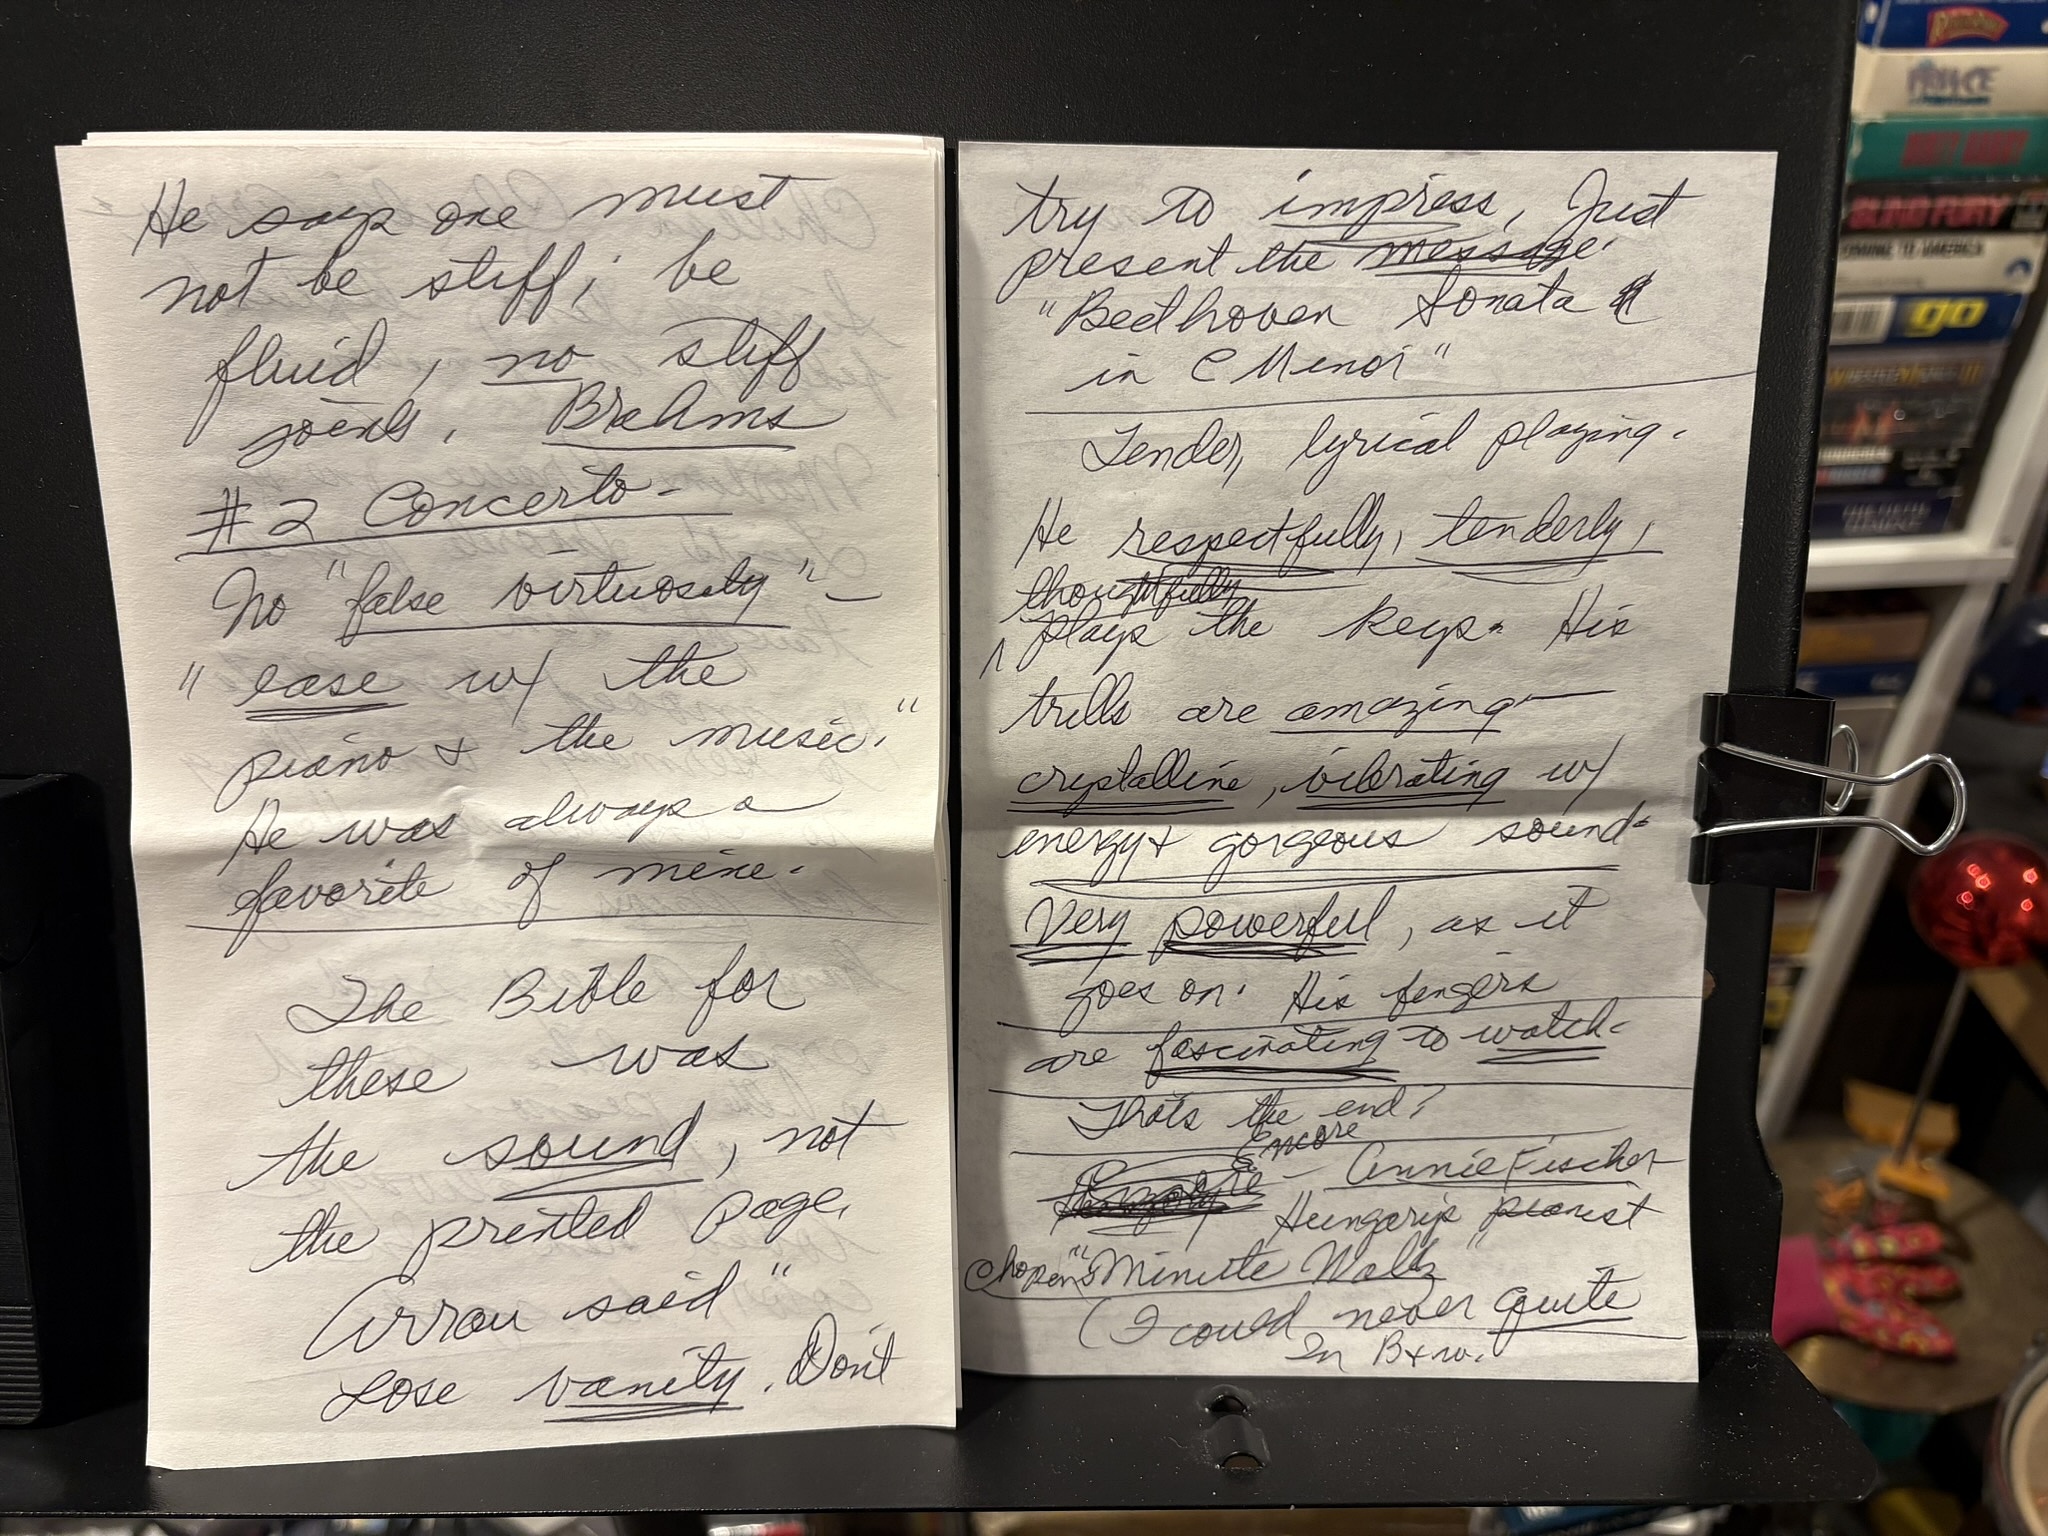 He says one must
not be stiff; be
fluid, no stiff
joints. Brahms
#2 Concerto-
No "false virtuosity"-
"ease w/ the
piano & the music."
He was always a
favorite of mine.
The Bible for
these was
the sound, not
the printed page.
Arrau said"
Lose vanity. Don't
try to impress, Just
present the message.
"Beethoven Sonata
in C Minor"
Tender, lyrical playing.
He respectfully, tenderly,
thoughtfully
plays the keys. His
trills are amazing—
crystalline, vibrating w/
energy & gorgeous sound-
Very powerful, as it
goes on. His fingers
are fascinating to watch-
That's the end?
Encore
- Annie Fischer
Hungary's pianist
Chopen's "Minute Waltz"
(I could never quite
In B+w.
PRINCE
BLIND FURY
COMING TO AMERICA
go